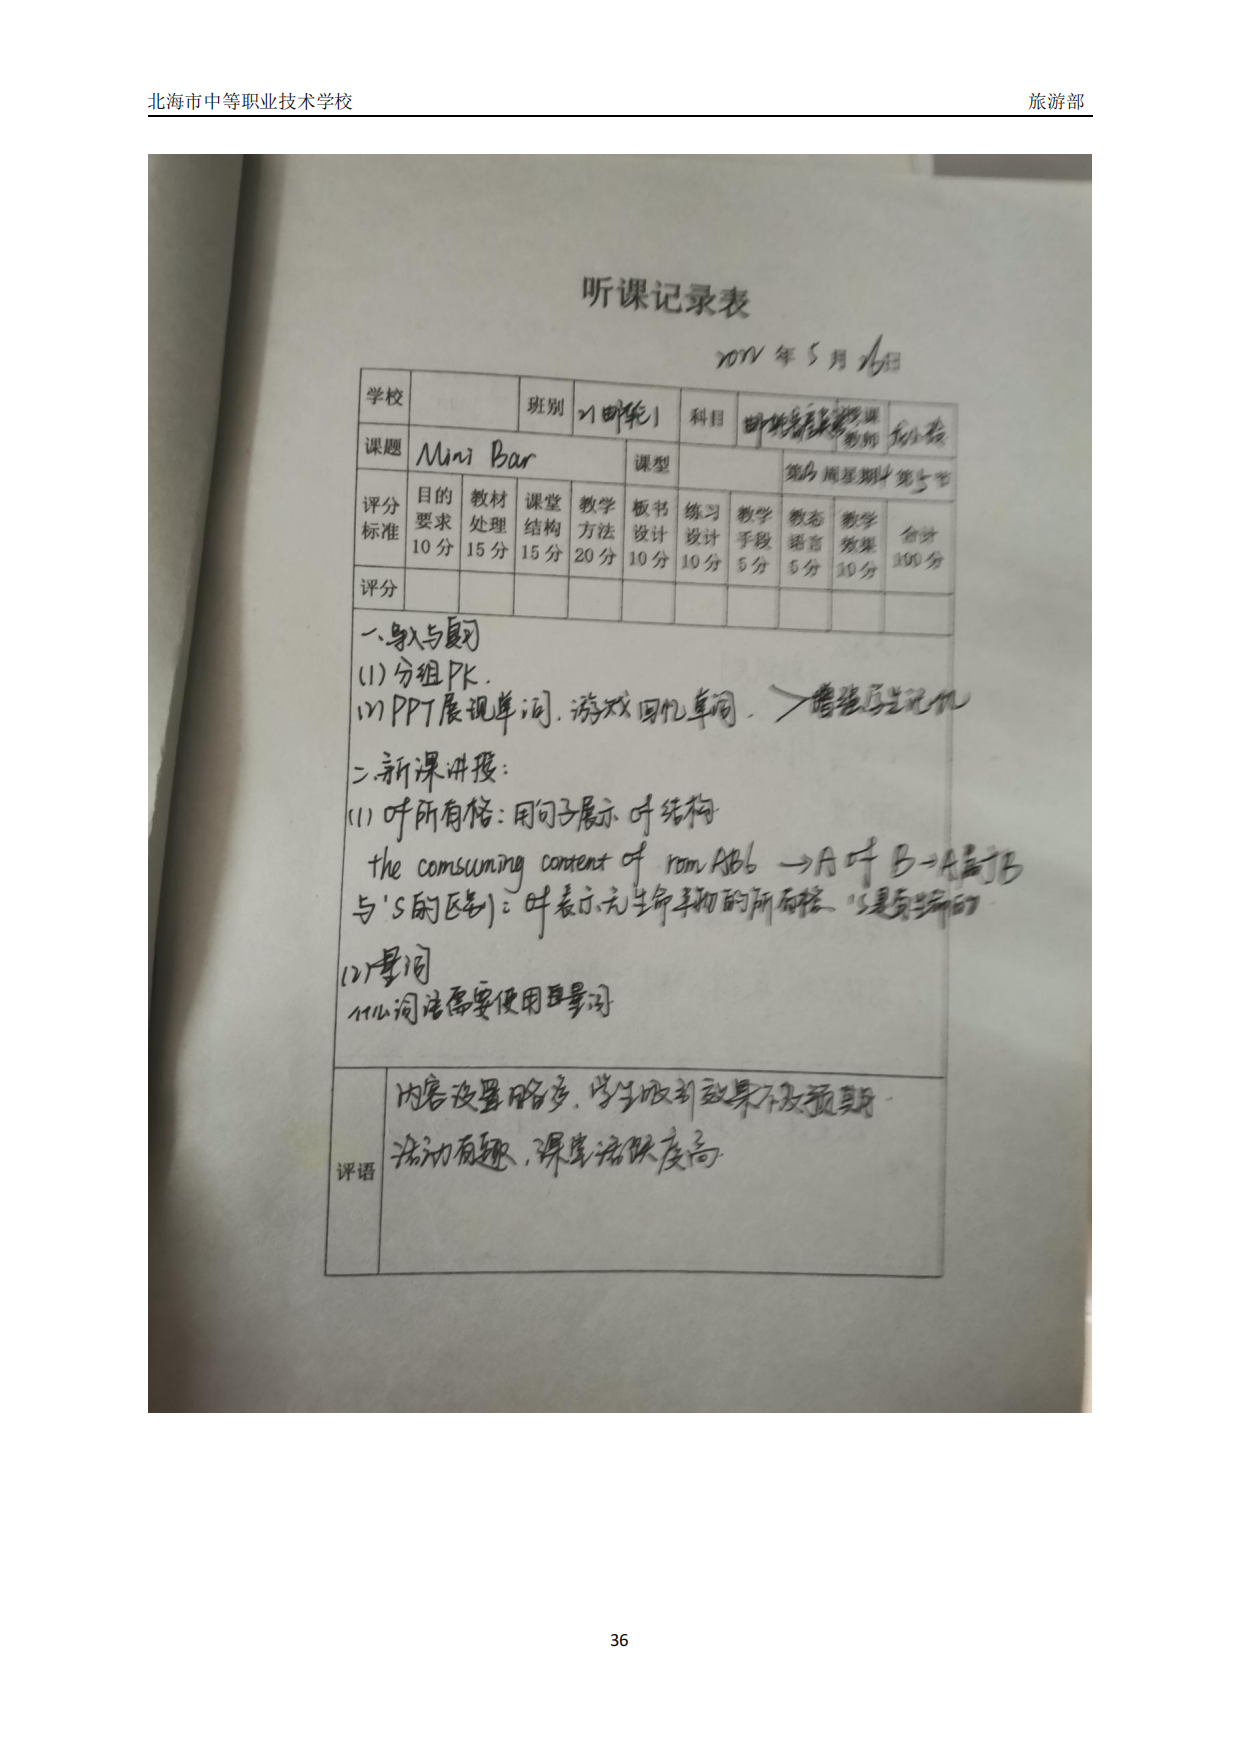 北海市中等职业技术学校 旅游部
听课记录表
2022年5月26日
学校 班别 21邮轮1 科目 授课教师
课题 Mini Bar 课型 第13周星期4第5节
评分标准 目的要求10分 教材处理15分 课堂结构15分 教学方法20分 板书设计10分 练习设计10分 教学手段5分 教态语言5分 教学效果10分 合计100分
评分
一、导入与复习
(1)分组PK.
(2)PPT展现单词.游戏回忆单词. 增强学生记忆
二.新课讲授:
(1) of所有格:用句子展示of结构
the comsuming content of rom ABb →A of B→A属于B
与's的区别:of表示无生命事物的所有格 's是有生命的
(2)量词
什么词语需要使用量词
评语 内容设置略多.学生吸引效果不及预期.
活动有趣,课堂活跃度高.
36